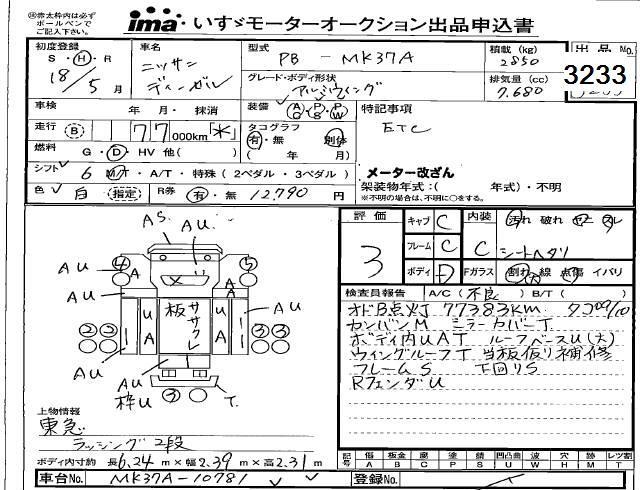 ㊟赤太枠内は必ず
ボールペンで
ご記入下さい。
ima いすゞモーターオークション出品申込書
初度登録
S・H・R
18/5月
車名
ニッサン
ディーゼル
型式
PB - MK37A
グレード・ボディ形状
アルミウイング
積載(kg)
2850
排気量(cc)
7,680
出品No.
3233
車検 年・月・抹消
装備 AC・PS・PW
特記事項
ETC
走行(B) 77000km(*)
タコグラフ
有・無 別体
( 年 月)
燃料 G・D・HV 他( )
シフト 6 M/T・A/T・特殊(2ペダル・3ペダル)
メーター改ざん
架装物年式:( 年式)・不明
※不明の場合は、不明に○をする。
色 白 (指定) R券 有・無 12,790円
AS AU
④ ⑤
AU AU
A A
UA 板ササクレ UA
②② ③③
AU AU
AU
枠U ③ T.
評価
3
キャブ C
フレーム C
ボディ D
内装 汚れ 破れ ヤニ スレ
C シートヘタリ
Fガラス 割れ 線 点傷 イバリ
検査員報告 A/C(不良) B/T( )
オドB点灯 77383KM タコ09/10
カンバンM ミラーカバーT
ボディ内UAT ルーフベースU(大)
ウィングルーフT 当板仮り補修
フレームS 下回りS
RフェンダU
上物情報
東急
ラッシング2段
ボディ内寸約 長6.24m×幅2.39m×高2.31m
記号 傷A 板金B 腐C 塗P 錆S 凹凸曲U 波W 穴H 跡M 切T レツ割
車台No. MK37A-10781
登録No.